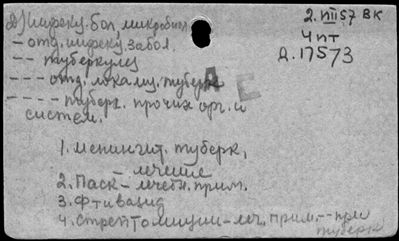 2) Инфекц. бол., микробиол.
2. ПII 57 ВК
– отд. инфекц. забол.
Ч пт
– – туберкулез
Д. 17573
– – – отд. локализ. туберк.
А Е
– – – – туберк. прочих орг. и
систем.
1. менингит. туберк.
– лечение
2. Паск – лечебн. прим.
3. Фтивазид
4. Стрептомицин – леч. прим. – при
туберк